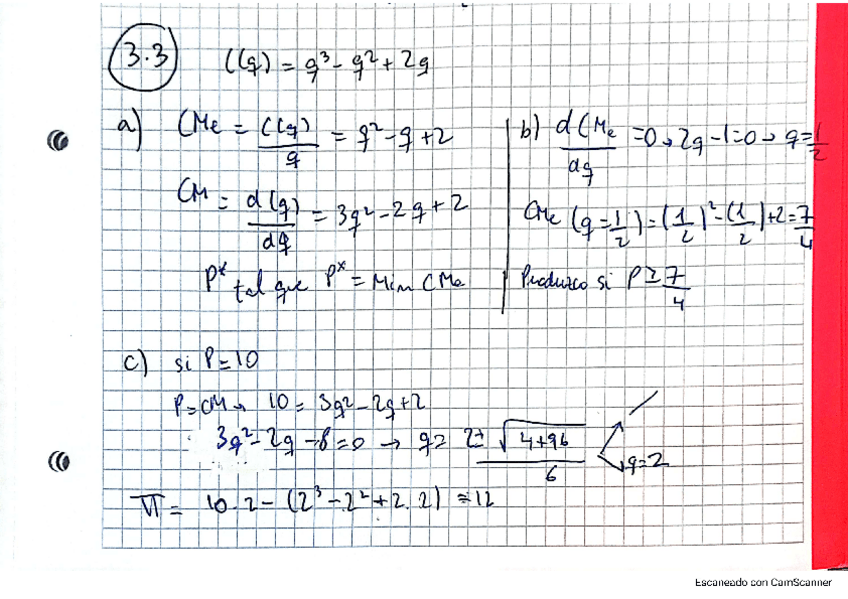 3.3 C(q) = q³ - q² + 2q
a) CMe = C(q)/q = q² - q + 2
CM = d(q)/dq = 3q² - 2q + 2
P* tal que P* = Min CMe
b) dCMe/dq = 0 → 2q - 1 = 0 → q = 1/2
CMe (q = 1/2) = (1/2)² - (1/2) + 2 = 7/4
Produzco si P ≥ 7/4
c) si P = 10
P = CM → 10 = 3q² - 2q + 2
3q² - 2q - 8 = 0 → q = 2 ± √4 + 96 / 6 → q = 2
π = 10 · 2 - (2³ - 2² + 2 · 2) = 12
Escaneado con CamScanner